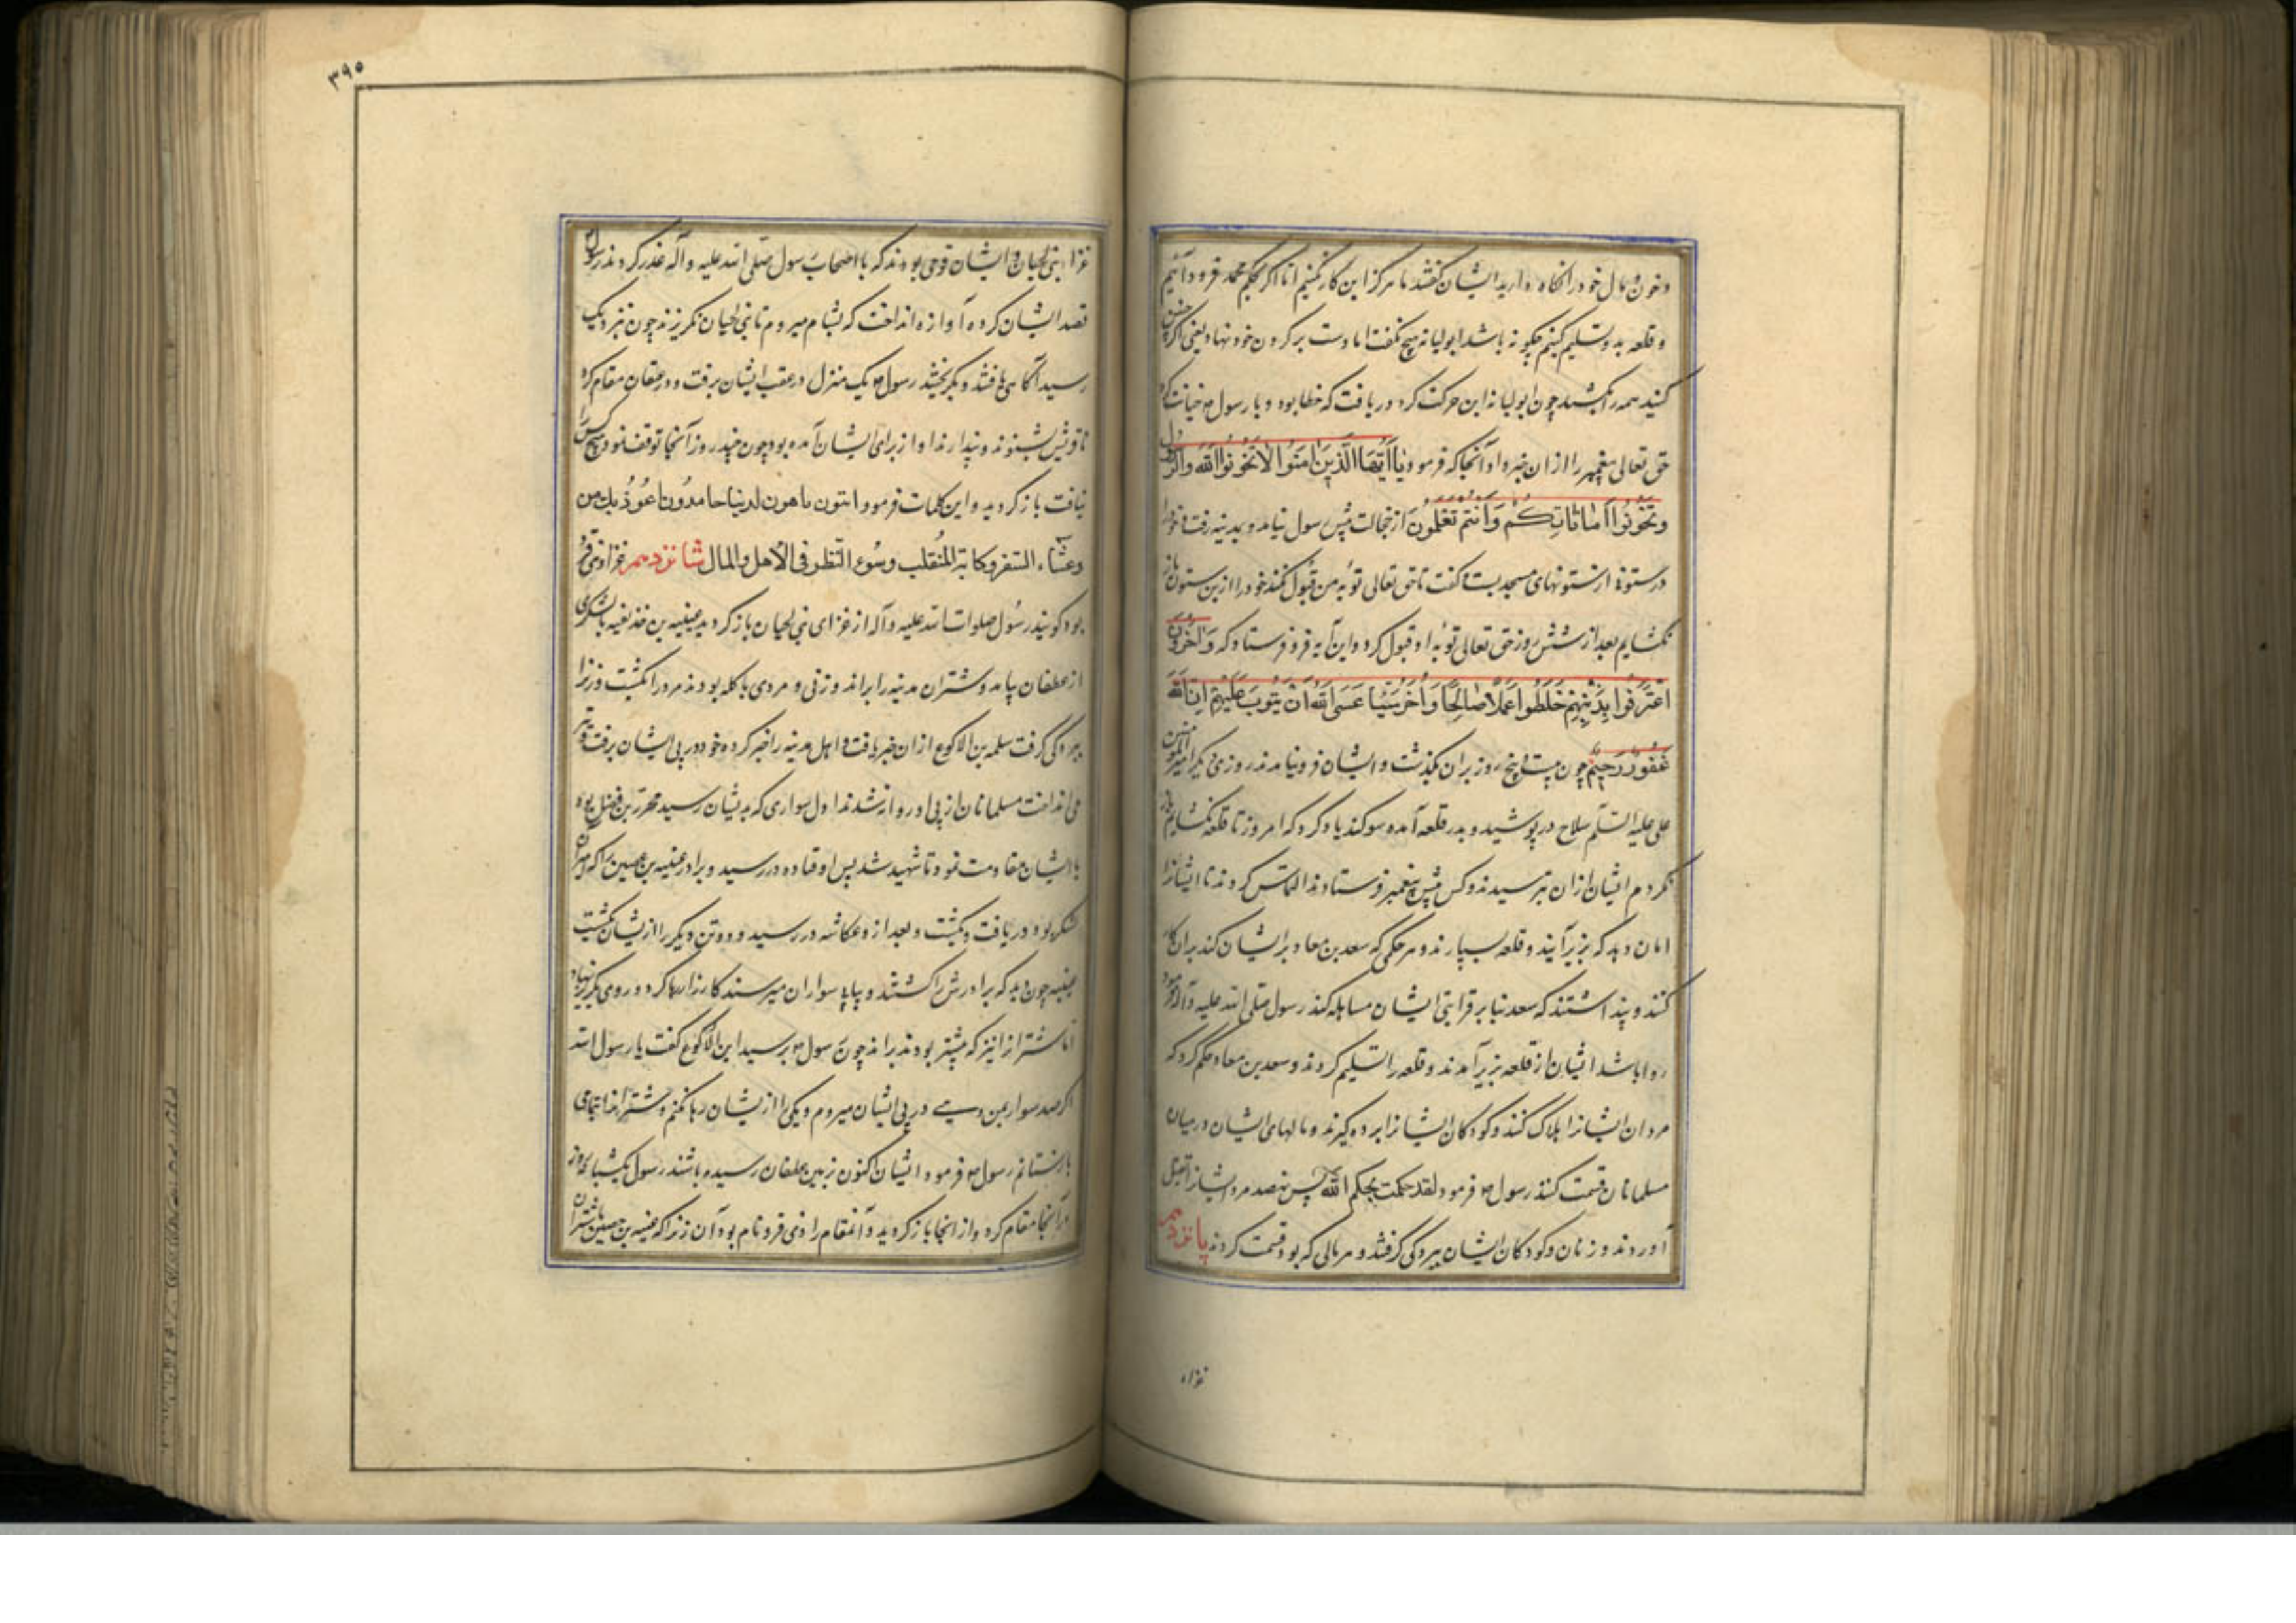 و خون و مال خود را نگاه دارید ایشان گفتند ما هرگز این کار نکنیم اما اگر بحکم محمد فرود آئیم
و قلعه بدو تسلیم کنیم چگونه باشد ابولبانه هیچ نگفت اما دست بر گردن خود نهاد یعنی اگر چنین
کنید همه را بکشند چون ابولبانه این حرکت کرد دریافت که خطا بود و با رسول خیانت کرد
حق تعالی پیغمبر را از ان خبر داد آنجا که فرمود یا أَیُّهَا الَّذِینَ اٰمَنُوا لاٰ تَخُونُوا اللّٰهَ وَالرَّسُولَ
وَتَخُونُوا أَمَانَاتِكُمْ وَأَنْتُمْ تَعْلَمُونَ از خجالت پیش رسول نیامد و بمدینه رفت و خود را
در ستونی از ستونهای مسجد بست و گفت تا حق تعالی توبهٔ من قبول نکند خود را ازین ستون باز
نگشایم بعد از شش روز حق تعالی توبهٔ او قبول کرد و این آیه فرو فرستاد که وَآخَرُونَ
اعْتَرَفُوا بِذُنُوبِهِمْ خَلَطُوا عَمَلًا صَالِحًا وَآخَرَ سَيِّئًا عَسَى اللهُ أَنْ يَتُوبَ عَلَيْهِمْ إِنَّ اللهَ
غَفُورٌ رَحِيمٌ چون بیست و پنج روز بران بگذشت و ایشان فرو نیامدند روزی دیگر امیر المؤمنین
علی علیه السّلم سلاح در پوشید و بدر قلعه آمد و سوگند یاد کرد که امروز تا قلعه نگشایم باز
نگردم ایشان از ان بترسیدند و کس پیش پیغمبر فرستادند و التماس کردند تا ایشانرا
امان دهد که بزیر آیند و قلعه بسپارند و هر حکمی که سعد بن معاد بر ایشان کند بران کار
کنند و پنداشتند که سعد بنا بر قرابتی ایشان مساهله کند رسول صلی الله علیه وآله فرمود
روا باشد ایشان از قلعه بزیر آمدند و قلعه را تسلیم کردند و سعد بن معاد حکم کرد که
مردان ایشانرا هلاک کنند و کودکان ایشانرا برده گیرند و مالهای ایشان در میان
مسلمانان قسمت کنند رسول فرمود لقد حکمت بحکم الله پس نهصد مرد ایشانرا بقتل
آوردند و زنان و کودکان ایشان ببردگی گرفتند و هر مالی که بود قسمت کردند پانزدهم
غزاء
۳۹۵
غزاء بنی لحیان و ایشان قومی بودند که با اصحاب رسول صلی الله علیه وآله غدر کردند رسول
قصد ایشان کرده آوازه انداخت که بشام میروم تا بنی لحیان نگریزند چون نزدیک
رسید آگاهی یافتند و بگریختند رسول یک منزل در عقب ایشان برفت و در عسفان مقام کرد
تا قریش بشنوند و پندارند او از برای ایشان آمده بود چون چند روز آنجا توقف نمود هیچ کس را
نیافت بازگردید و این کلمات فرمود ائتون تاهون لربنا حامدون اعوذ بك من
وعثاء السفر وكابة المنقلب وسوء النظر فی الاهل والمال شانزدهم غزاء ذی قرد
بود گویند رسول صلوات الله علیه وآله از غزای بنی لحیان بازگردید عیینیه بن حذیفه با لشکری
از غطفان بیامد و شتران مدینه را براند و زنی و مردی با گله بودند مرد را بکشت و زنرا
ببردگی گرفت سلمه بن الاکوع از ان خبر یافت و اهل مدینه را خبر کرده خود در پی ایشان برفت و تیر
می انداخت مسلمانان از پی او روانه شدند اول سواری که بدیشان رسید محرز بن فضل بود
با ایشان مقاومت نمود تا شهید شد پس او قتاده در رسید و برادر عیینیه بن حصین را که امیر آن
لشکر بود دریافت و بکشت و بعد از و عکاشه در رسید و دو تن دیگر را از یشان بکشت
عیینیه چون دید که برادرش را کشتند و پیاپی سواران میرسند کارزار رها کرد و روی بگریز نهاد
اما شتر از انیز که پیشتر بودند براند چون رسول برسید ابن الاکوع گفت یا رسول الله
اگر صد سوار بمن دهی در پی ایشان میروم و یکی را از یشان رها نکنم و شتر انرا بتمامی
بازستانم رسول فرمود ایشان کنون بزمین غطفان رسیده باشند رسول یکشبانه روز
در آنجا مقام کرد و از انجا بازگردید و آنمقام را ذی قرد نام بود آن زنرا که عیینه بن حصین با شتران